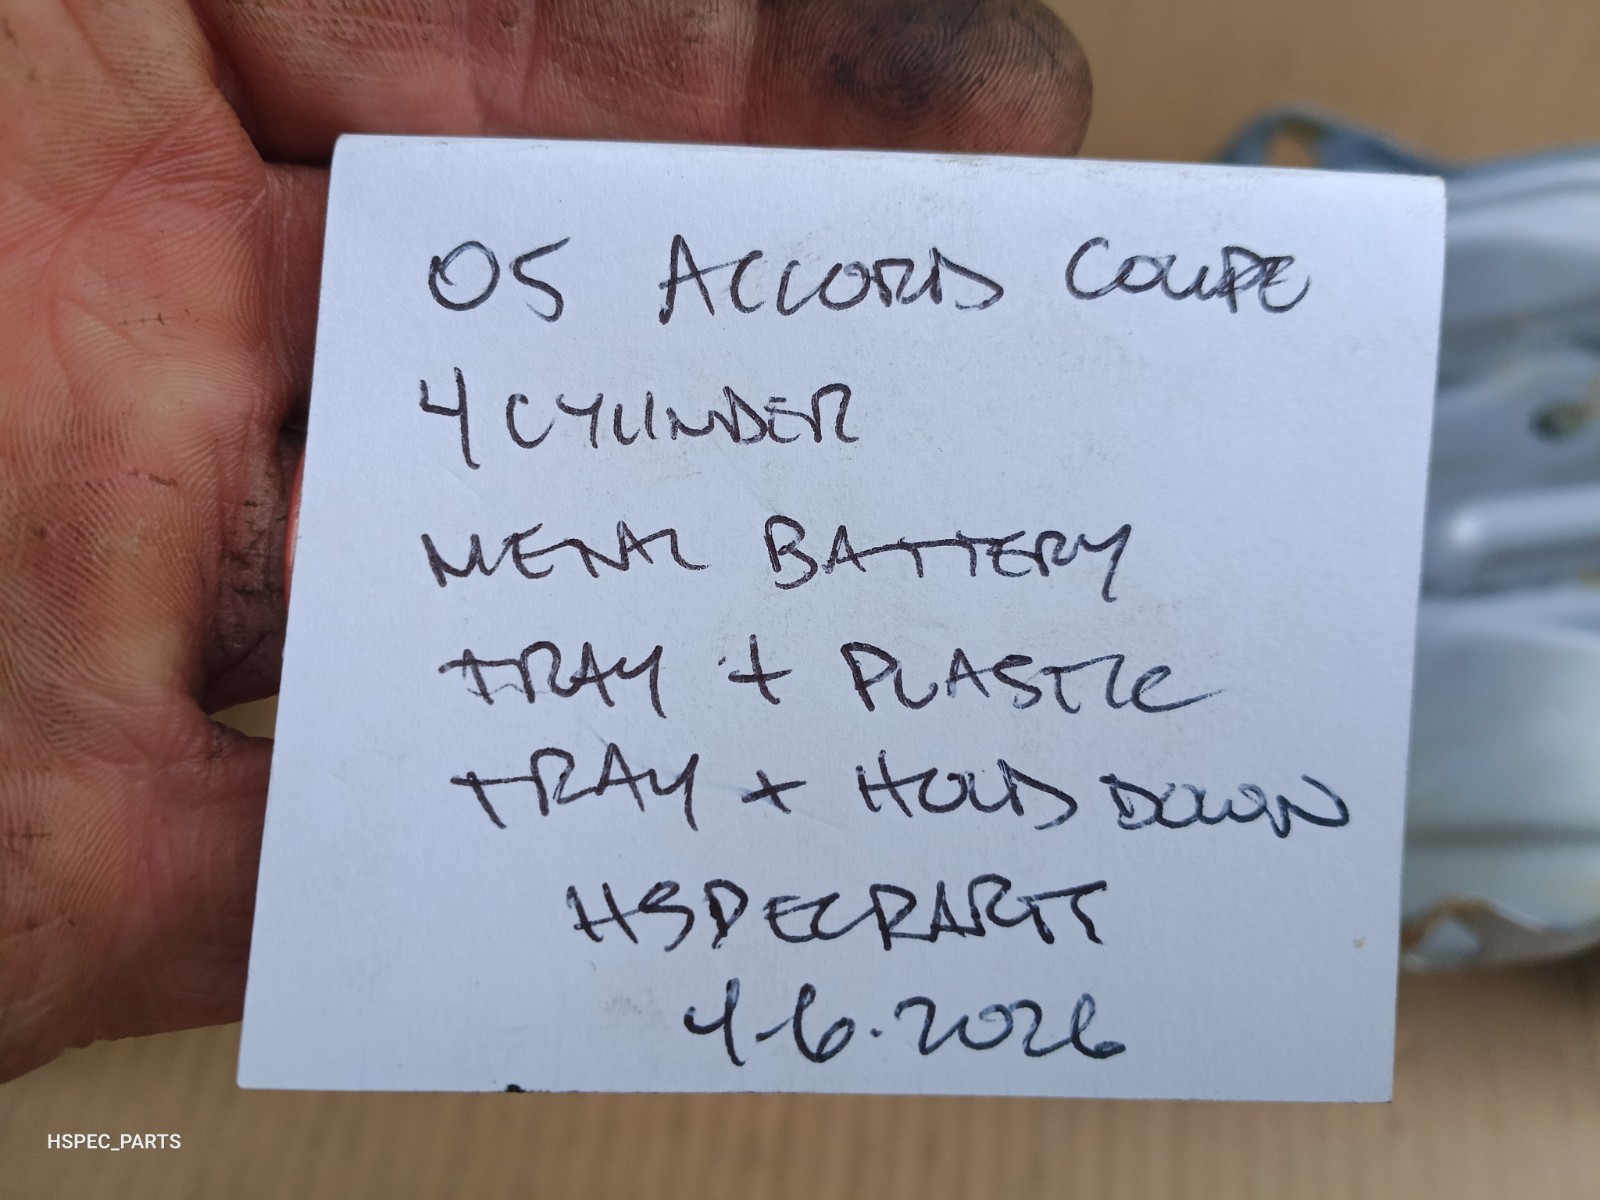 05 ACCORD COUPE
4 CYLINDER
METAL BATTERY
TRAY + PLASTIC
TRAY + HOLD DOWN
HSPECPARTS
4-6-2026
HSPEC_PARTS